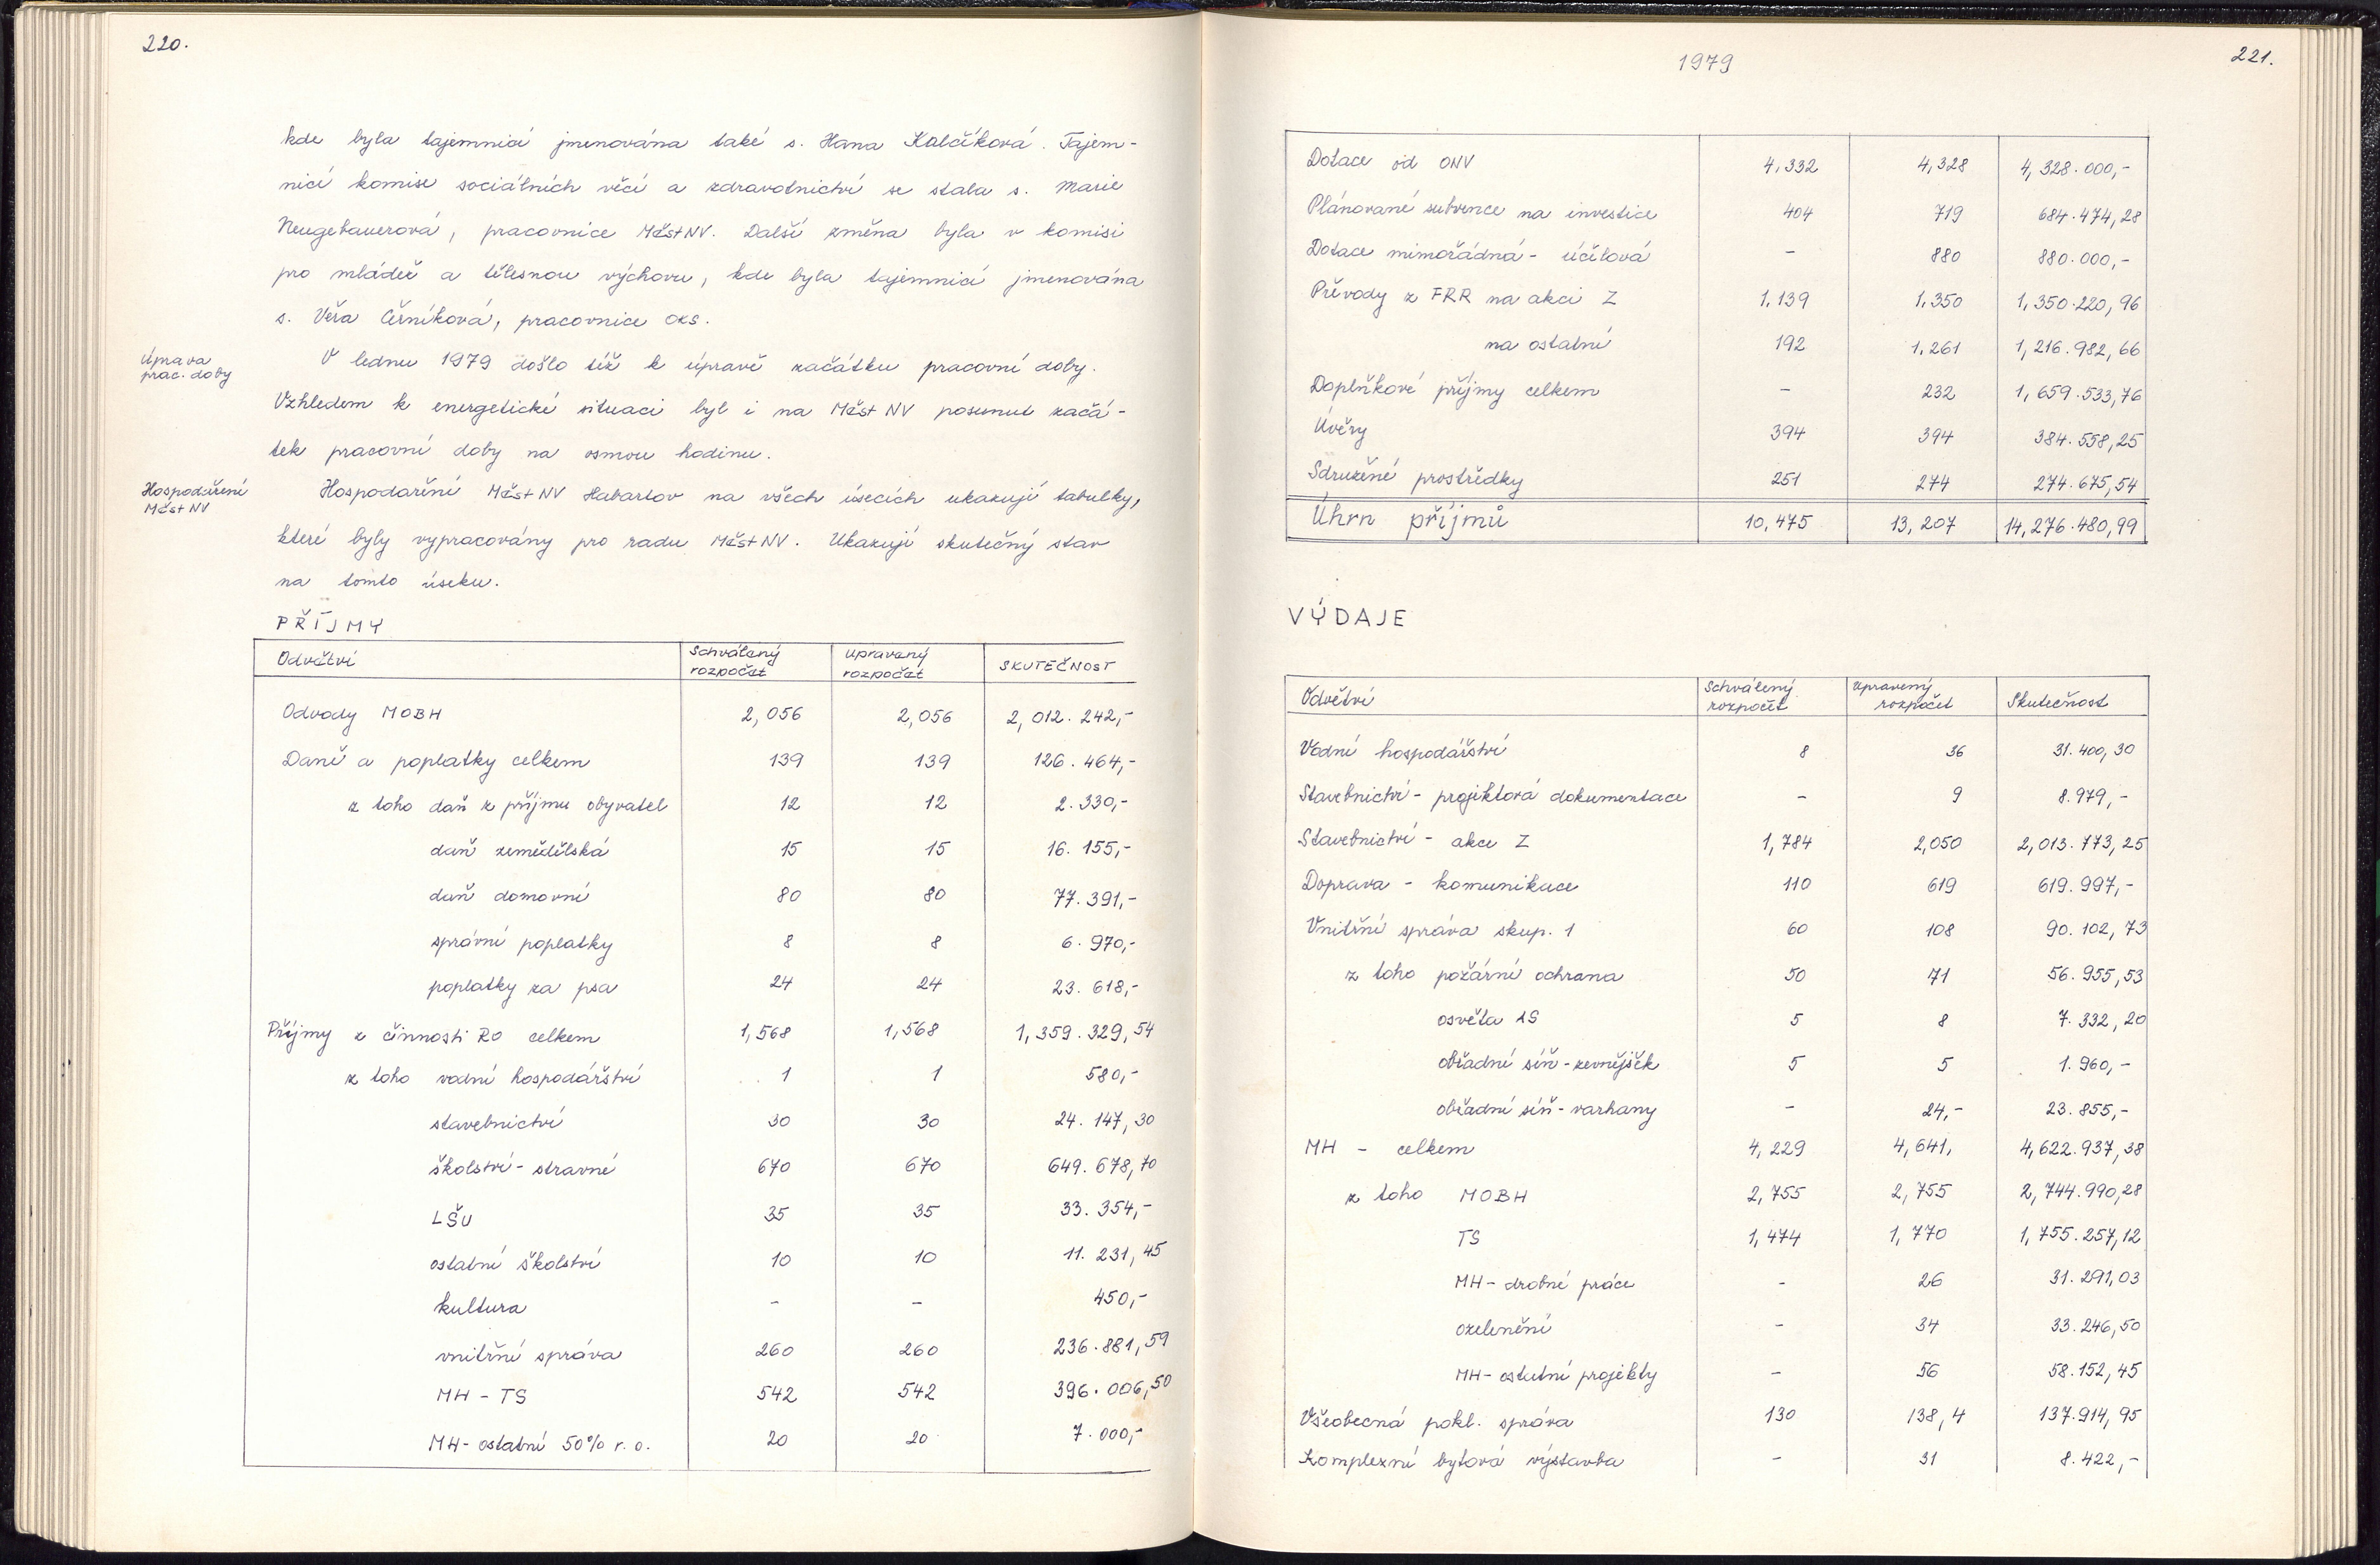 220.
kde byla tajemnicí jmenována také s. Hana Kalčíková. Tajem-
nicí komise sociálních věcí a zdravotnictví se stala s. Marie
Neugebauerová, pracovnice MěstNV. Další změna byla v komisi
pro mládež a tělesnou výchovu, kde byla tajemnicí jmenována
s. Věra Černíková, pracovnice OKS.
Úprava
prac. doby
V lednu 1979 došlo též k úpravě začátku pracovní doby.
Vzhledem k energetické situaci byl i na Měst NV posunut začá-
tek pracovní doby na osmou hodinu.
Hospodaření
Měst NV
Hospodaření Měst NV Habartov na všech úsecích ukazují tabulky,
které byly vypracovány pro radu MěstNV. Ukazují skutečný stav
na tomto úseku.
PŘÍJMY
Odvětví Schválený rozpočet Upravený rozpočet SKUTEČNOST
Odvody MOBH 2,056 2,056 2,012.242,-
Daně a poplatky celkem 139 139 126.464,-
z toho daň z příjmu obyvatel 12 12 2.330,-
daň zemědělská 15 15 16.155,-
daň domovní 80 80 77.391,-
správní poplatky 8 8 6.970,-
poplatky za psa 24 24 23.618,-
Příjmy z činnosti RO celkem 1,568 1,568 1,359.329,54
z toho vodní hospodářství 1 1 580,-
stavebnictví 30 30 24.147,30
školství - stravné 670 670 649.678,70
LŠU 35 35 33.354,-
ostatní školství 10 10 11.231,45
kultura - - 450,-
vnitřní správa 260 260 236.881,59
MH - TS 542 542 396.006,50
MH - ostatní 50% r.o. 20 20 7.000,-
1979
221.
Dotace od ONV 4,332 4,328 4,328.000,-
Plánované subvence na investice 404 719 684.474,28
Dotace mimořádná - účelová - 880 880.000,-
Převody z FRR na akci Z 1.139 1.350 1,350.220,96
na ostatní 192 1.261 1,216.982,66
Doplňkové příjmy celkem - 232 1,659.533,76
Úvěry 394 394 384.558,25
Sdružené prostředky 251 274 274.675,54
Úhrn příjmů 10,475 13,207 14,276.480,99
VÝDAJE
Odvětví Schválený rozpočet Upravený rozpočet Skutečnost
Vodní hospodářství 8 36 31.400,30
Stavebnictví - projektová dokumentace - 9 8.979,-
Stavebnictví - akce Z 1,784 2,050 2,013.773,25
Doprava - komunikace 110 619 619.997,-
Vnitřní správa skup. 1 60 108 90.102,73
z toho požární ochrana 50 71 56.955,53
osvěta LS 5 8 7.332,20
obřadní síň - zevnějšek 5 5 1.960,-
obřadní síň - varhany - 24,- 23.855,-
MH - celkem 4,229 4,641, 4,622.937,38
z toho MOBH 2,755 2,755 2,744.990,28
TS 1,474 1,770 1,755.257,12
MH - drobné práce - 26 31.291,03
ozelenění - 34 33.246,50
MH - ostatní projekty - 56 58.152,45
Všeobecná pokl. správa 130 138,4 137.914,95
Komplexní bytová výstavba - 31 8.422,-